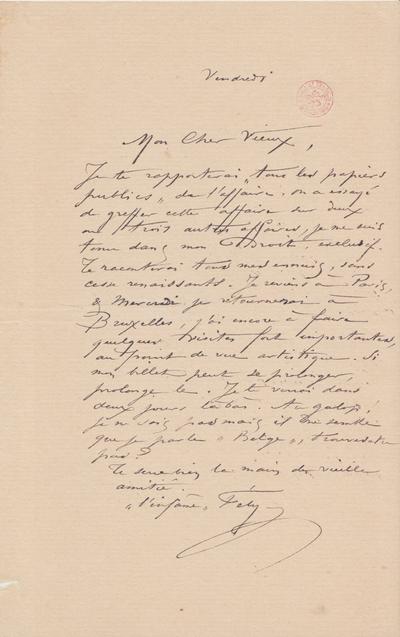 Vendredi
Mon Cher Vieux,
Je te rapporterai "tous les papiers
publics" de l'affaire. on a essayé
de greffer cette affaire sur deux
ou trois autres affaires, je me suis
tenu dans mon droit, exclusif.
Te raconterai tous mes ennuis, sans
cesse renaissants. Je reviens à Paris,
& Mercredi je retournerai à
Bruxelles, j'ai encore à faire
quelques visites fort importantes,
au point de vue artistique. Si
mon billet peut se prolonger,
prolonge le. Je te verrai dans
deux jours là bas. Au galop!
je ne sais pas mais il me semble
que je parle "Belge", trouves tu
pas?
Te serre bien la main de vieille
amitié.
"l'infâme" Fély